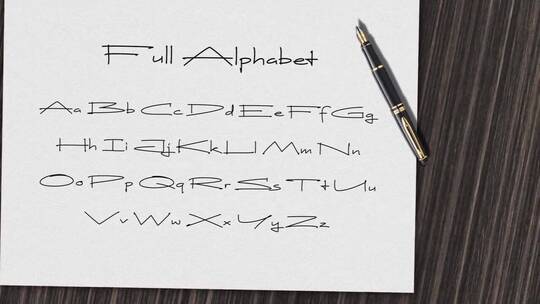 Full Alphabet
Aa Bb Cc Dd Ee Ff Gg
Hh Ii Jj Kk Ll Mm Nn
Oo Pp Qq Rr Ss Tt Uu
Vv Ww Xx Yy Zz